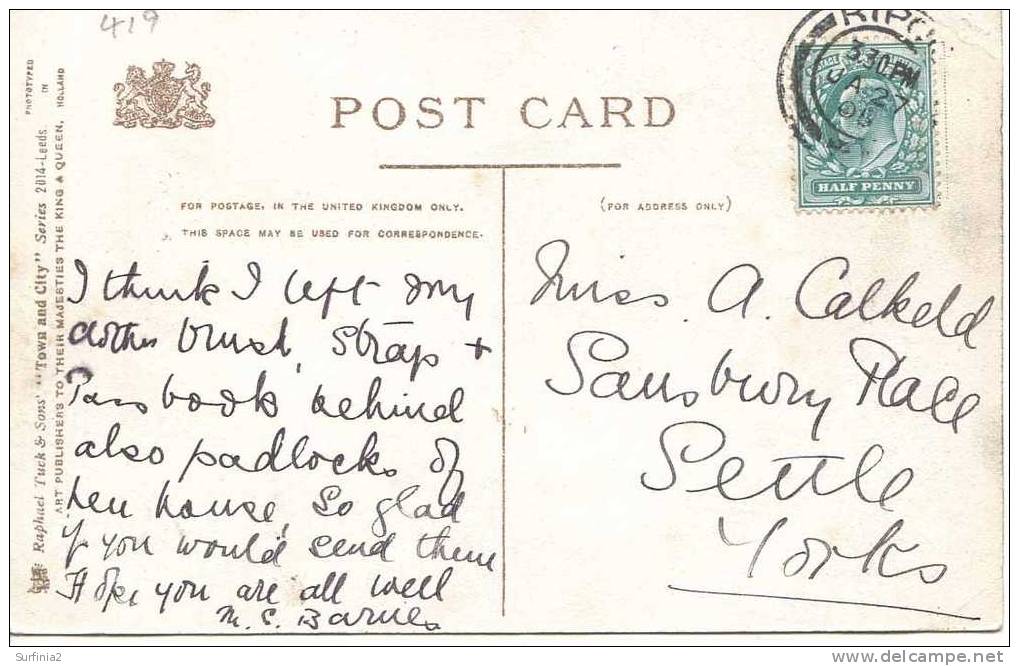 419
POST CARD
FOR POSTAGE, IN THE UNITED KINGDOM ONLY.
THIS SPACE MAY BE USED FOR CORRESPONDENCE.
(FOR ADDRESS ONLY)
PHOTOTYPED IN HOLLAND
Raphael Tuck & Sons' "Town and City" Series 2014-Leeds.
ART PUBLISHERS TO THEIR MAJESTIES THE KING & QUEEN.
3.30PM
JA 27
HALF PENNY
I think I left my
clothes brush, Strap +
Pass book behind
also padlocks of
hen house, So glad
if you would send them
Hope you are all well
M. C. Barnes
Miss. A. Calkeld
Sansbury Place
Settle
Yorks
Surfinia2
delcampe.net